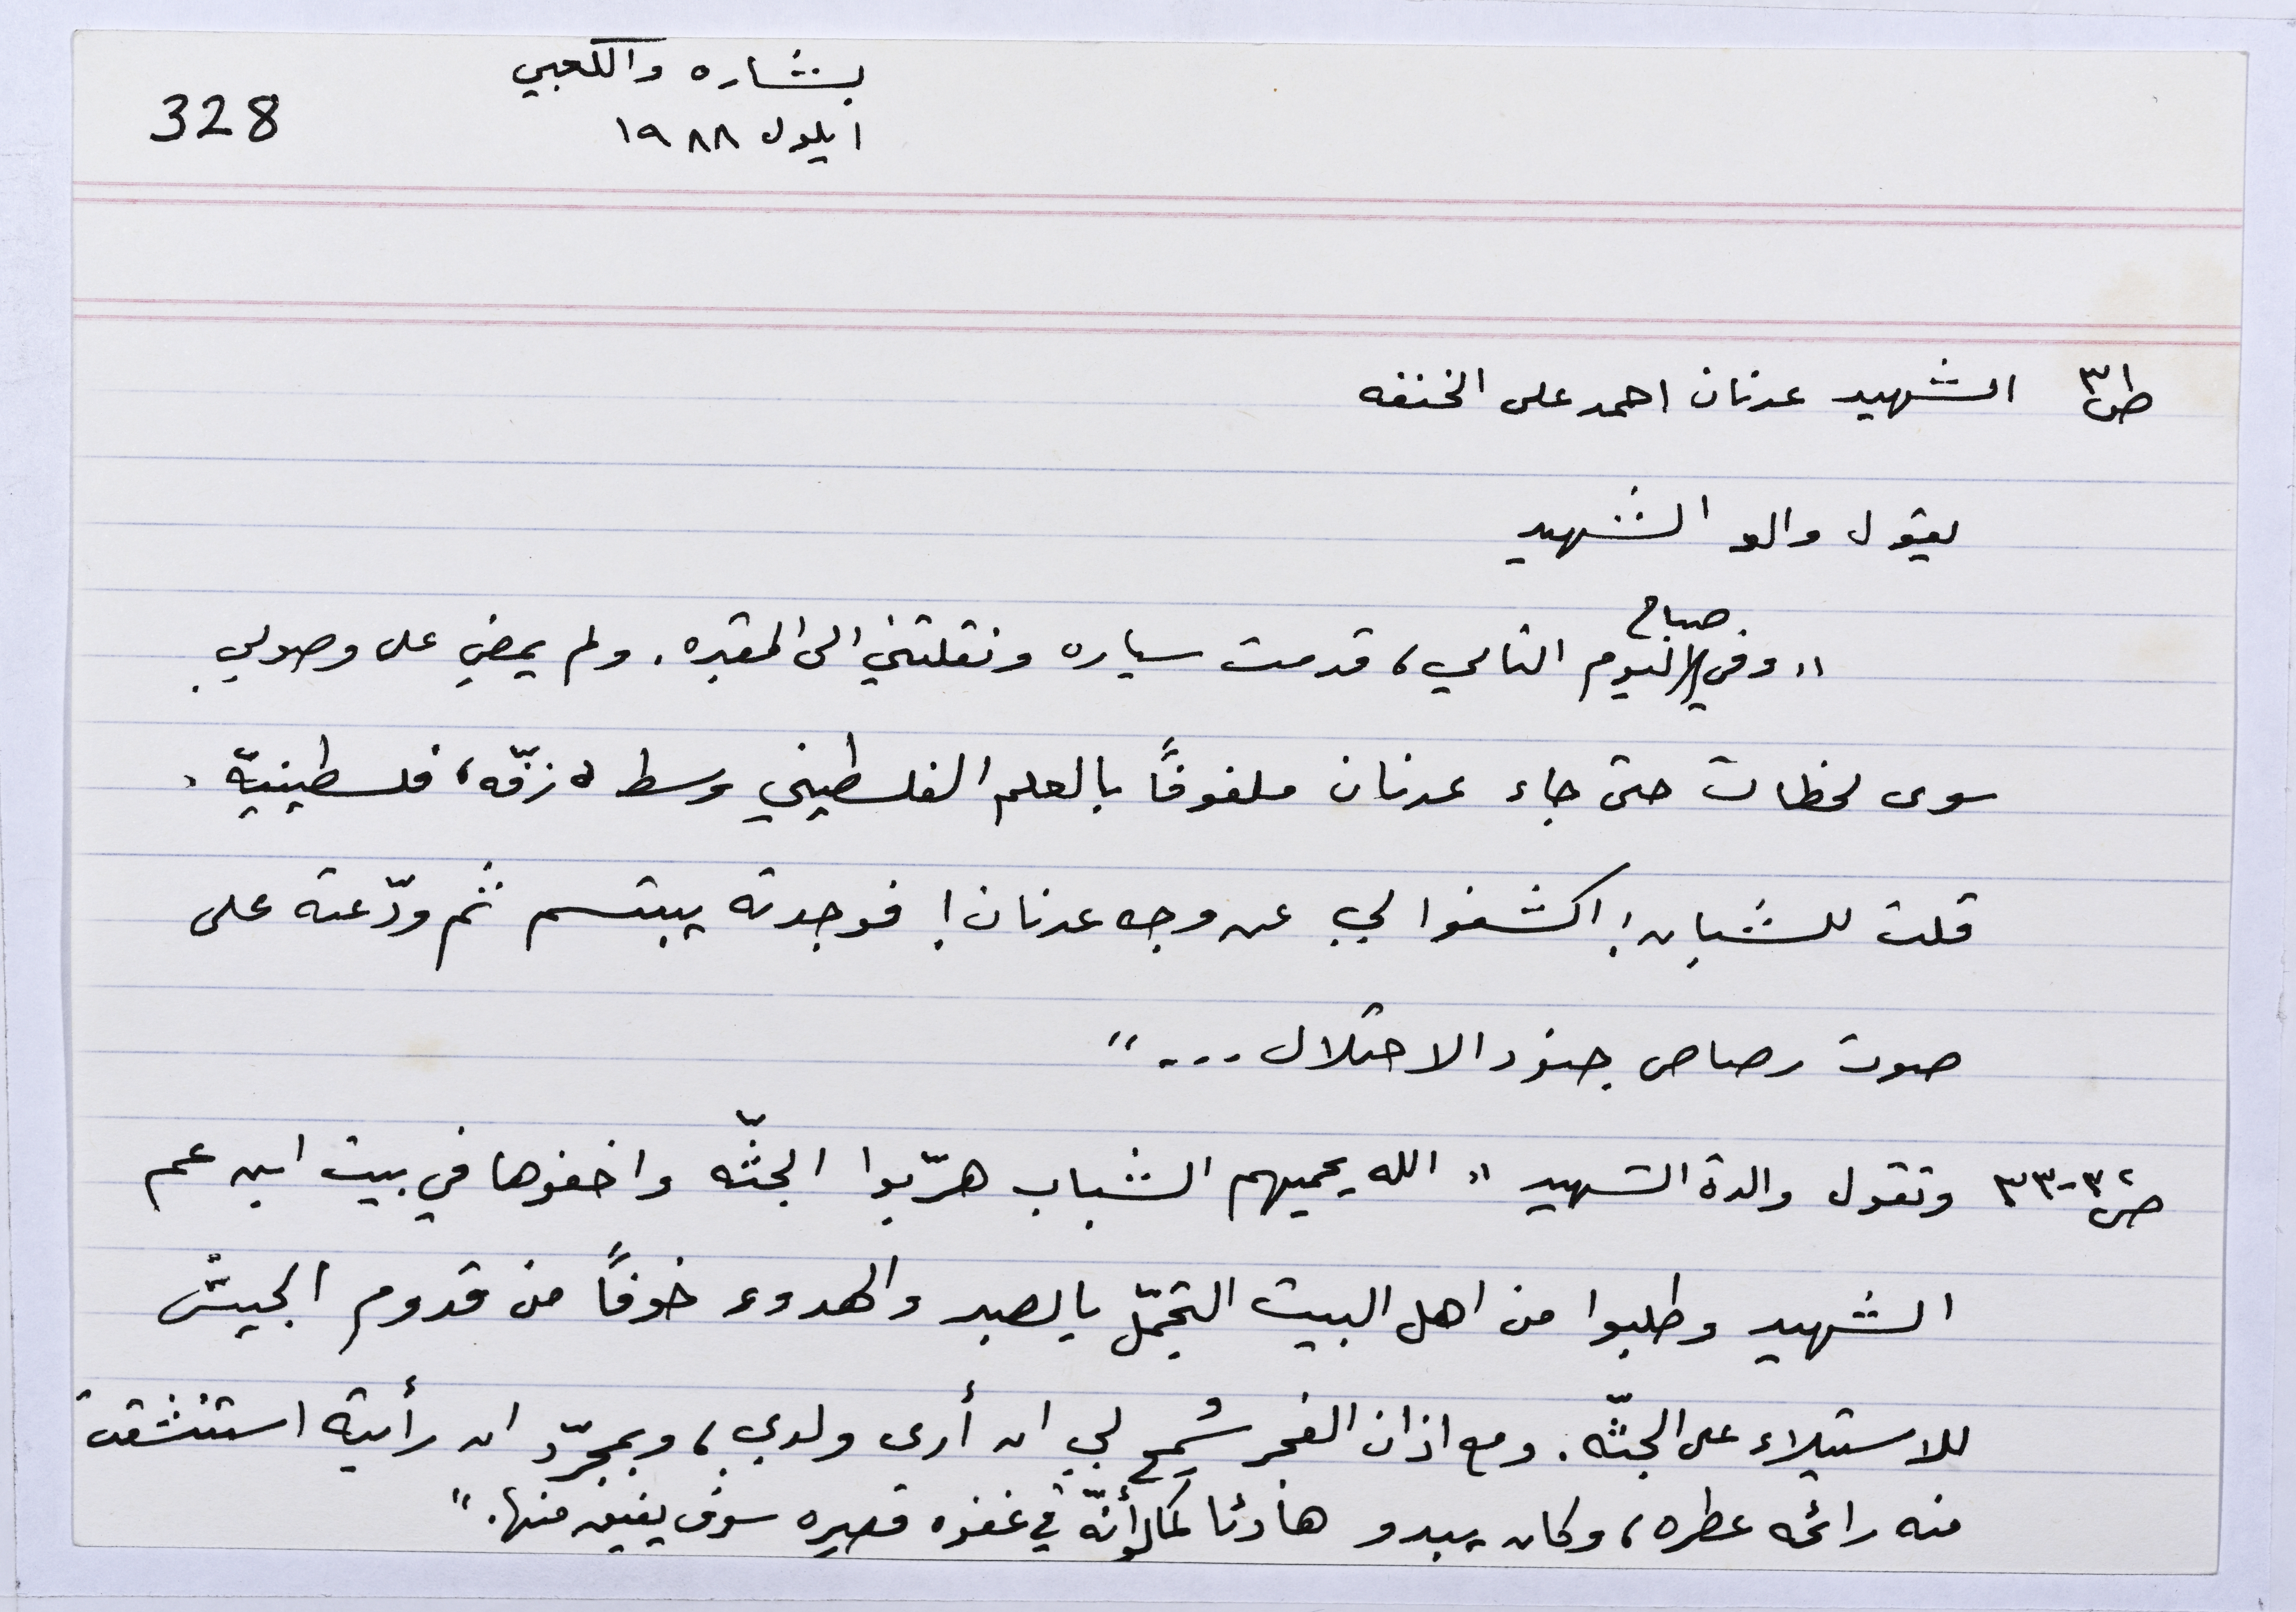 بشاره والكعبي
328
ايلول ١٩٨٨
ص٣١ الشهيد عدنان احمد على الخنفه
يقول والد الشهيد
صباح
"وفي اليوم التالي، قدمت سياره ونقلتني الى المقبره. ولم يمضِ على وصولي
سوى لحظات حتى جاء عدنان ملفوفاً بالعلم الفلسطيني وسط "زفّه" فلسطينيّة.
قلت للشبان: اكشفوا لي عن وجه عدنان! فوجدته يبتسم ثم ودّعته على
صوت رصاص جنود الاحتلال ...."
ص٣٢-٣٣ وتقول والدة الشهيد "الله يحميهم الشباب هرّبوا الجثّه واخفوها في بيت ابن عم
الشهيد وطلبوا من اهل البيت التجمّل بالصبر والهدوء خوفاً من قدوم الجيش
للاستيلاء على الجثّه. ومع اذان الفجر سُمح لي ان أرى ولدي، وبمجرّد ان رأيته استنشقت
منه رائحه عطره، وكان يبدو هادئا كما لو أنّه في غفوه قصيره سوف يفيق منها."